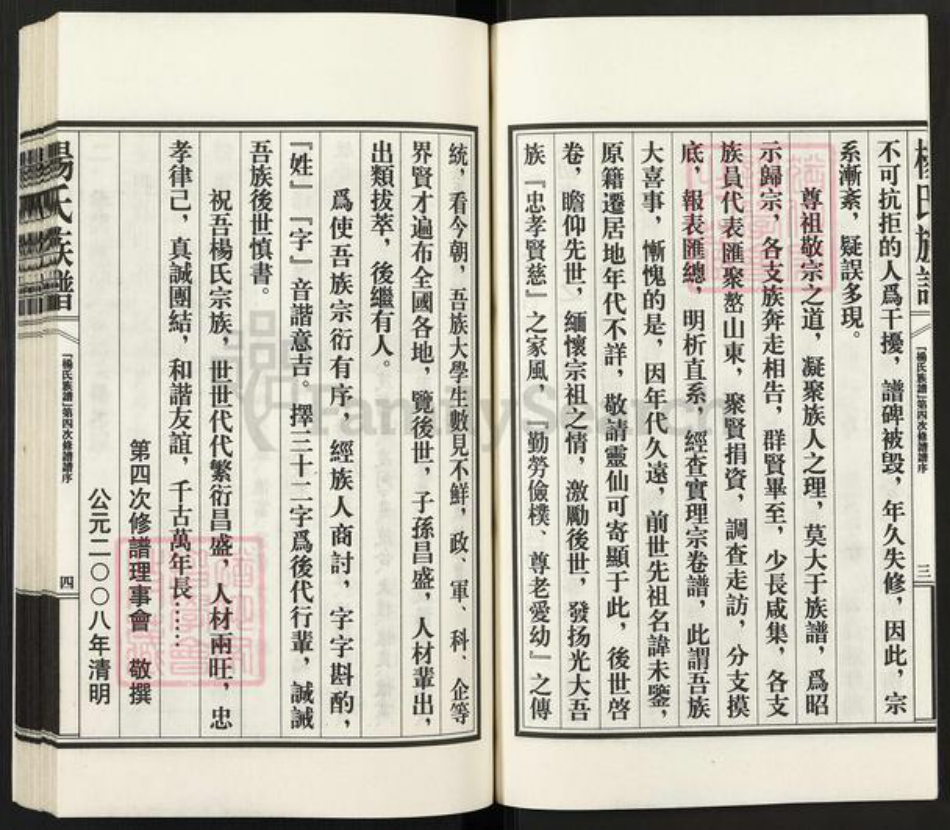 楊氏族譜
『楊氏族譜』第四次修譜譜序
三
不可抗拒的人爲干擾，譜碑被毁，年久失修，因此，宗
系漸紊，疑誤多現。
尊祖敬宗之道，凝聚族人之理，莫大于族譜，爲昭
示歸宗，各支族奔走相告，群賢畢至，少長咸集，各支
族員代表匯聚嶅山東，聚賢捐資，調查走訪，分支摸
底，報表匯總，明析直系，經查實理宗卷譜，此謂吾族
大喜事，慚愧的是，因年代久遠，前世先祖名諱未鑒，
原籍遷居地年代不詳，敬請靈仙可寄顯于此，後世啓
卷，瞻仰先世，緬懷宗祖之情，激勵後世，發扬光大吾
族『忠孝賢慈』之家風，『勤勞儉樸、尊老愛幼』之傳
統，看今朝，吾族大學生數見不鮮，政、軍、科、企等
界賢才遍布全國各地，覽後世，子孫昌盛，人材輩出，
出類拔萃，後繼有人。
爲使吾族宗衍有序，經族人商討，字字斟酌，
『姓』『字』音諧意吉。擇三十二字爲後代行輩，誠誡
吾族後世慎書。
祝吾楊氏宗族，世世代代繁衍昌盛，人材兩旺，忠
孝律己，真誠團結，和諧友誼，千古萬年長……
第四次修譜理事會 敬撰
公元二〇〇八年清明
楊氏族譜
『楊氏族譜』第四次修譜譜序
四
FamilySearch